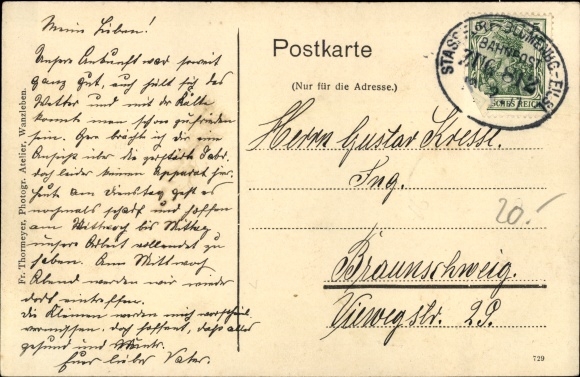 Meine Lieben!
Unsere Ankunft war soweit
ganz gut, auch hält sich das
Wetter und mit der Kälte
konnte man schon zufrieden
sein. Gern brächte ich die eine
Ansicht über die zerstörte Fabr.
doch leider keinen Apparat hier.
Heut am Dienstag geht es
nochmals scharf und hoffen
am Mittwoch bis Mittag
unsere Arbeit vollendet zu
haben. Am Mittwoch
Abend werden wir wieder
dort eintreffen.
Die Kleinen werden mich
vermissen. doch hoffend, daß alles
gesund und
Euer lieber Vater.
Fr. Thormeyer, Photogr. Atelier, Wanzleben.
Postkarte
(Nur für die Adresse.)
BLUMENBG.-
BAHNPOST
ZUG 812
DEUTSCHES REICH
Herrn Gustav Kressl.
Ing.
20.-
Braunschweig.
Viewegstr. 29.
729